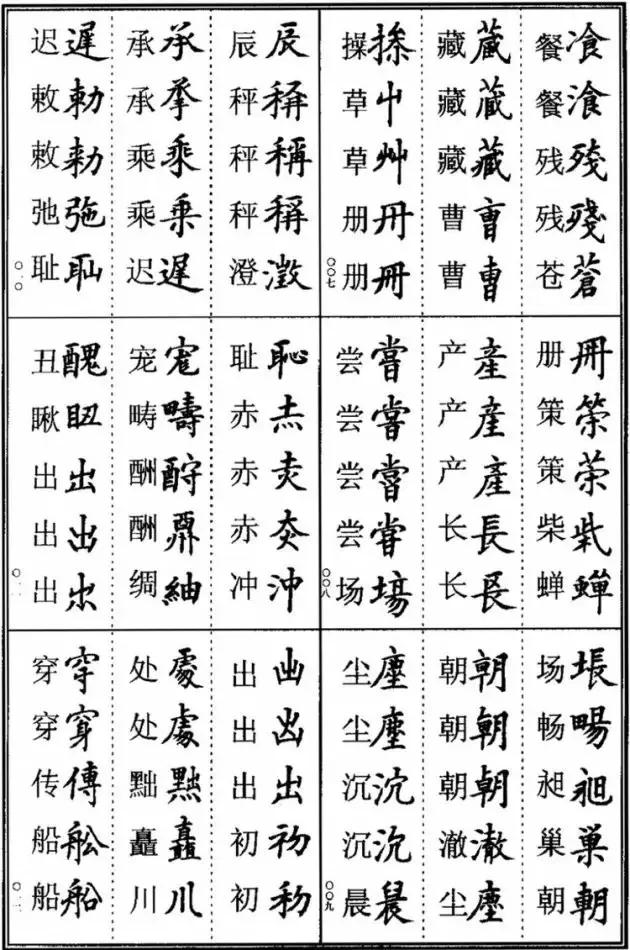 餐飡 餐湌 残残 残殘 苍蒼
藏藏 藏藏 藏藏 曹曺 曹曹
操 草屮 草艸 册冊 册冊
〇〇七
册冊 策 策 柴 蝉蟬
产產 产產 产產 长長 长镸
尝嘗 尝嘗 尝嘗 尝甞 场塲
〇〇八
场 畅暢 昶昶 巢巢 朝朝
朝朝 朝朝 朝朝 澈澈 尘塵
尘塵 尘塵 沉沉 沉沉 晨
〇〇九
辰辰 秤 秤稱 秤稱 澄澂
承承 承 乘乗 乘乗 迟遲
迟遲 敕勅 敕勑 弛㢮 耻耻
〇一〇
耻恥 赤 赤 赤 冲沖
宠 畴疇 酬酧 酬 绸紬
丑醜 瞅 出出 出出 出
〇一一
出 出 出出 初初 初
处處 处處 黜黜 矗矗 川川
穿穿 穿穿 传傳 船舩 船船
〇一二